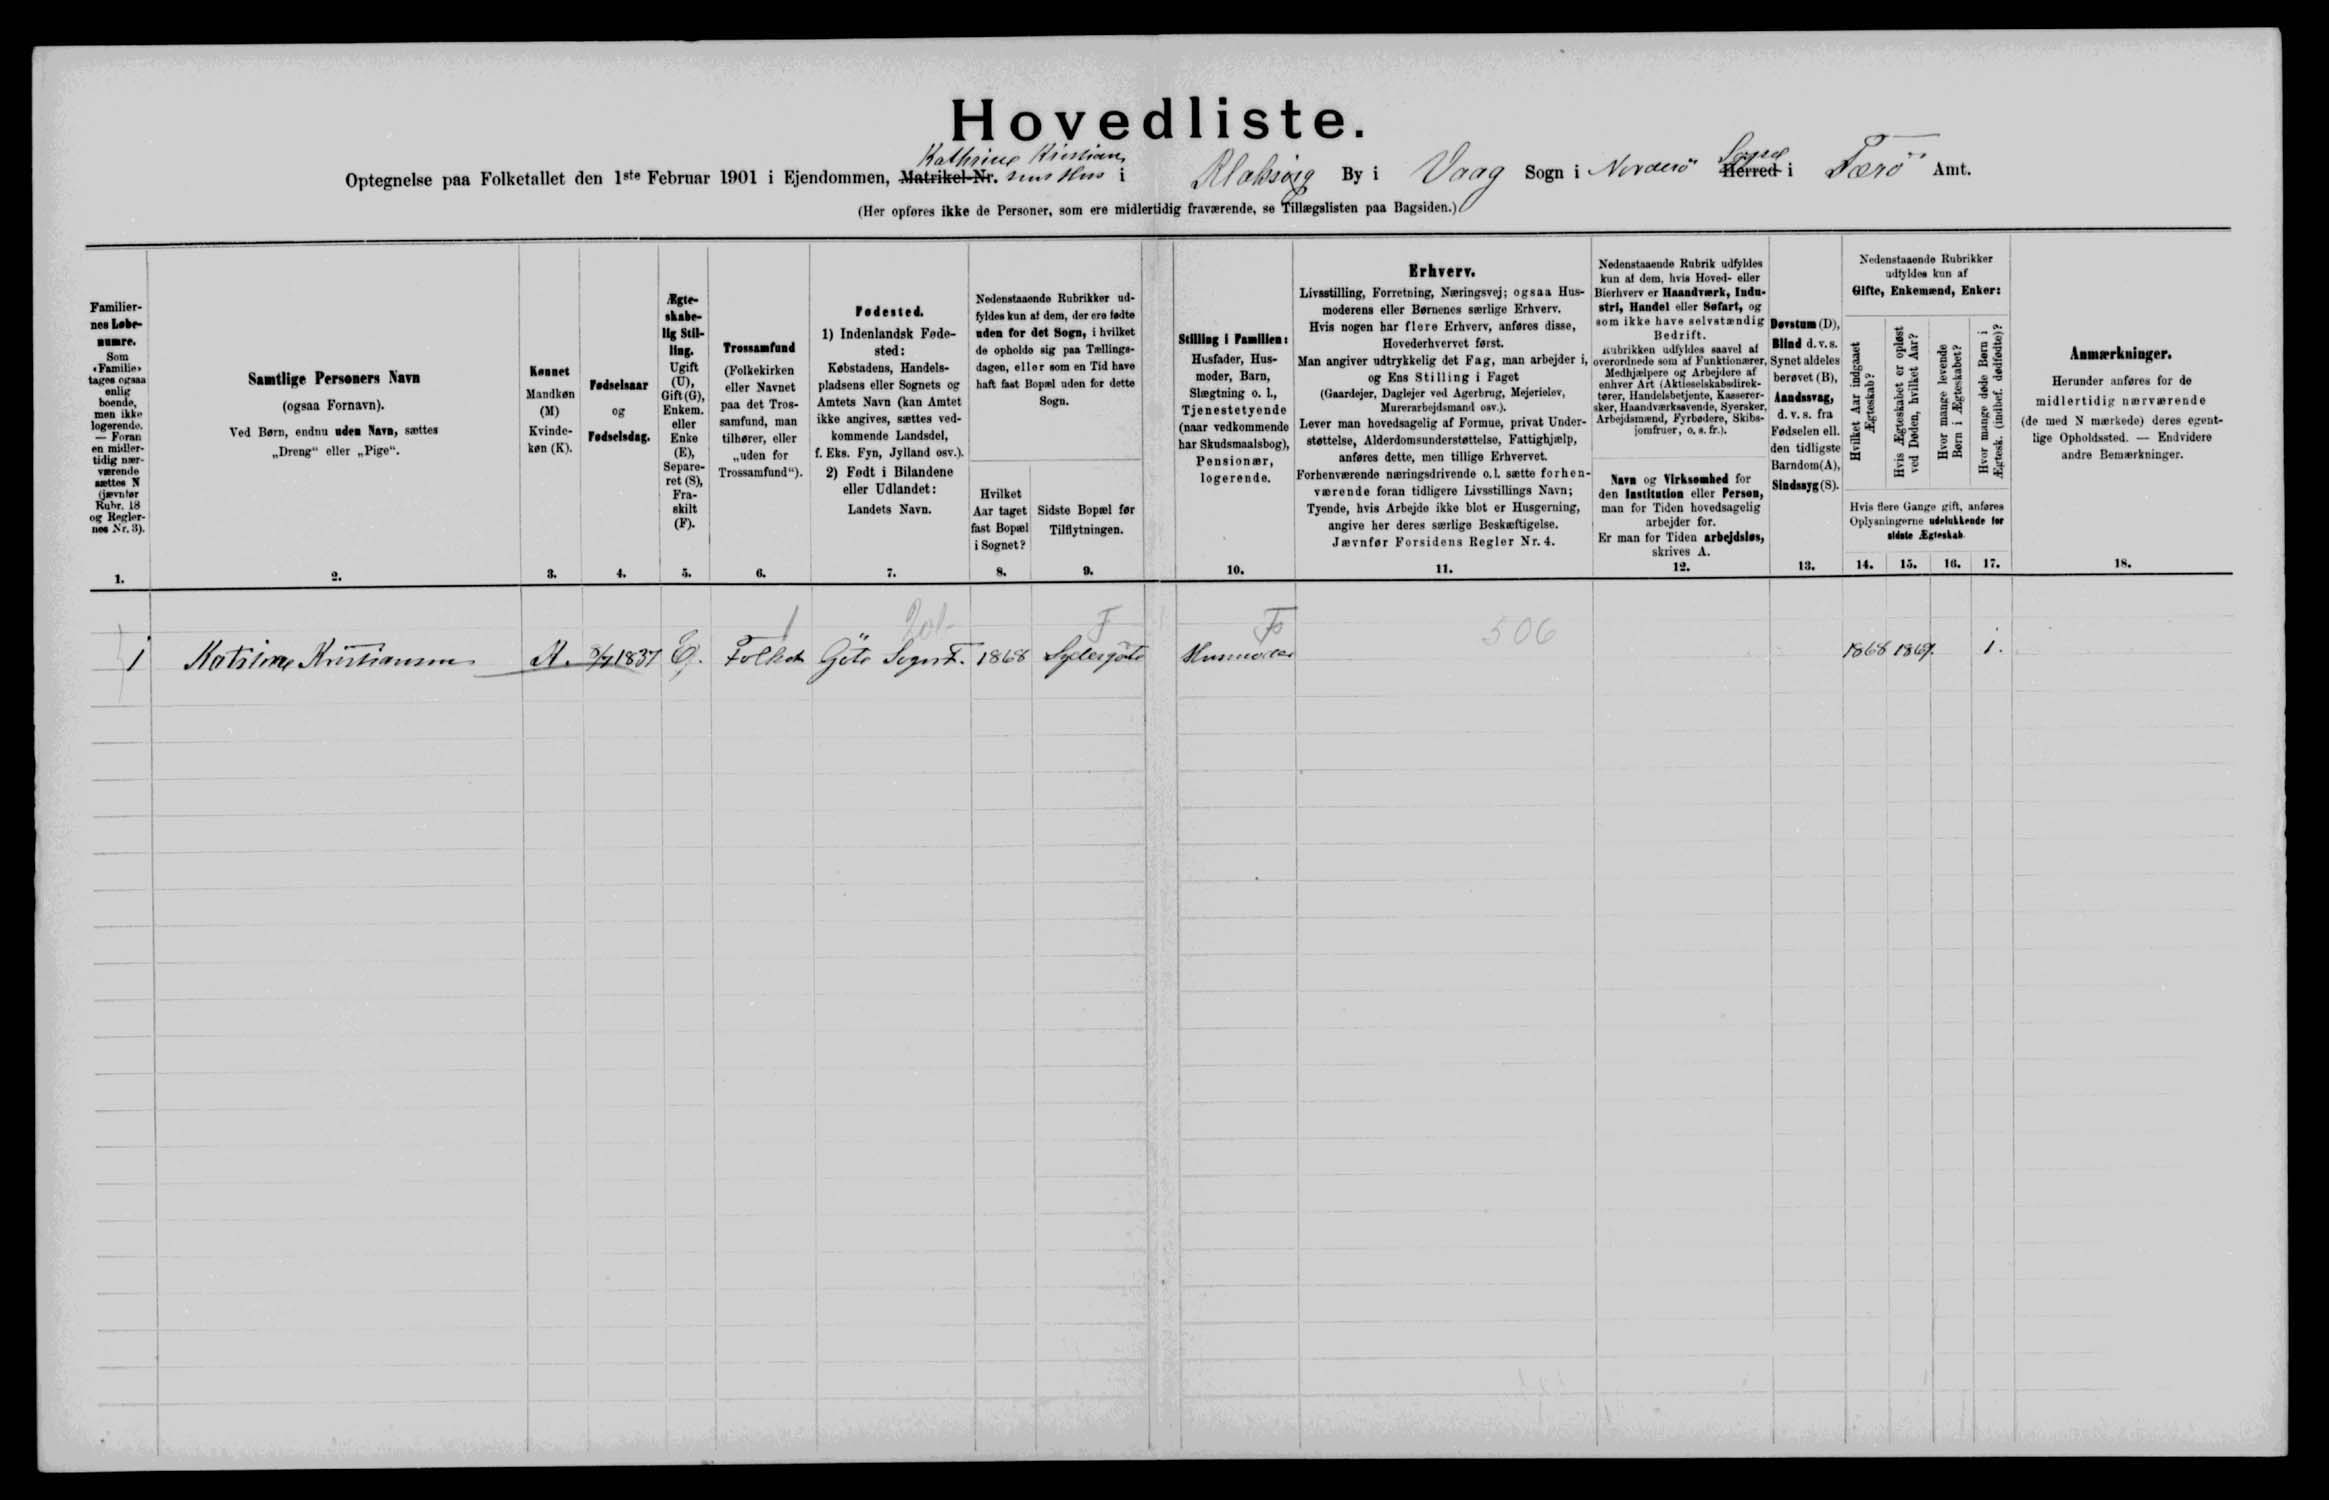 Hovedliste.
Kathrine Kristian
Optegnelse paa Folketallet den 1ste Februar 1901 i Ejendommen, Matrikel-Nr. sens Hus i Klaksvig By i Vaag Sogn i Norderø Syssel Herred i Færø Amt.
(Her opføres ikke de Personer, som ere midlertidig fraværende, se Tillægslisten paa Bagsiden.)
Familier-
nes Løbe-
numre.
Som
«Familie»
tages ogsaa
enlig
boende,
men ikke
logerende.
— Foran
en midler-
tidig nær-
værende
sættes N
(jævnfør
Rubr. 18
og Regler-
nes Nr. 3).
1.
Samtlige Personers Navn
(ogsaa Fornavn).
Ved Børn, endnu uden Navn, sættes
„Dreng“ eller „Pige“.
2.
Kønnet
Mandkøn
(M)
Kvinde-
køn (K).
3.
Fødselsaar
og
Fødselsdag.
4.
Ægte-
skabe-
lig Stil-
ling.
Ugift
(U),
Gift (G),
Enkem.
eller
Enke
(E),
Separe-
ret (S),
Fra-
skilt
(F).
5.
Trossamfund
(Folkekirken
eller Navnet
paa det Tros-
samfund, man
tilhører, eller
„uden for
Trossamfund“).
6.
Fødested.
1) Indenlandsk Føde-
sted:
Købstadens, Handels-
pladsens eller Sognets og
Amtets Navn (kan Amtet
ikke angives, sættes ved-
kommende Landsdel,
f. Eks. Fyn, Jylland osv.).
2) Født i Bilandene
eller Udlandet:
Landets Navn.
7.
Nedenstaaende Rubrikker ud-
fyldes kun af dem, der ere fødte
uden for det Sogn, i hvilket
de opholde sig paa Tællings-
dagen, eller som en Tid have
haft fast Bopæl uden for dette
Sogn.
Hvilket
Aar taget
fast Bopæl
i Sognet?
8.
Sidste Bopæl før
Tilflytningen.
9.
Stilling i Familien:
Husfader, Hus-
moder, Barn,
Slægtning o. l.,
Tjenestetyende
(naar vedkommende
har Skudsmaalsbog),
Pensionær,
logerende.
10.
Erhverv.
Livsstilling, Forretning, Næringsvej; ogsaa Hus-
moderens eller Børnenes særlige Erhverv.
Hvis nogen har flere Erhverv, anføres disse,
Hovederhvervet først.
Man angiver udtrykkelig det Fag, man arbejder i,
og Ens Stilling i Faget
(Gaardejer, Daglejer ved Agerbrug, Mejerielev,
Murerarbejdsmand osv.).
Lever man hovedsagelig af Formue, privat Under-
støttelse, Alderdomsunderstøttelse, Fattighjælp,
anføres dette, men tillige Erhvervet.
Forhenværende næringsdrivende o. l. sætte forhen-
værende foran tidligere Livsstillings Navn;
Tyende, hvis Arbejde ikke blot er Husgerning,
angive her deres særlige Beskæftigelse.
Jævnfør Forsidens Regler Nr. 4.
11.
Nedenstaaende Rubrik udfyldes
kun af dem, hvis Hoved- eller
Bierhverv er Haandværk, Indu-
stri, Handel eller Søfart, og
som ikke have selvstændig
Bedrift.
Rubrikken udfyldes saavel af
overordnede som af Funktionærer,
Medhjælpere og Arbejdere af
enhver Art (Aktieselskabsdirek-
tører, Handelsbetjente, Kasserer-
sker, Haandværkssvende, Syersker,
Arbejdsmænd, Fyrbødere, Skibs-
jomfruer, o. s. fr.).
Navn og Virksomhed for
den Institution eller Person,
man for Tiden hovedsagelig
arbejder for.
Er man for Tiden arbejdsløs,
skrives A.
12.
Døvstum (D),
Blind d. v. s.
Synet aldeles
berøvet (B),
Aandssvag,
d. v. s. fra
Fødselen ell.
den tidligste
Barndom (A),
Sindssyg (S).
13.
Nedenstaaende Rubrikker
udfyldes kun af
Gifte, Enkemænd, Enker:
Hvilket Aar indgaaet
Ægteskab?
Hvis Ægteskabet er opløst
ved Døden, hvilket Aar?
Hvor mange levende
Børn i Ægteskabet?
Hvor mange døde Børn i
Ægtesk. (indbef. dødfødte)?
Hvis flere Gange gift, anføres
Oplysningerne udelukkende for
sidste Ægteskab.
14. 15. 16. 17.
Anmærkninger.
Herunder anføres for de
midlertidig nærværende
(de med N mærkede) deres egent-
lige Opholdssted. — Endvidere
andre Bemærkninger.
18.
1 F F 506
1 Katrine Kristiansen K. 1837 E. Folkek Göte Sogn F. 1868 Sydergöte Husmoder 1868 1869. 1.